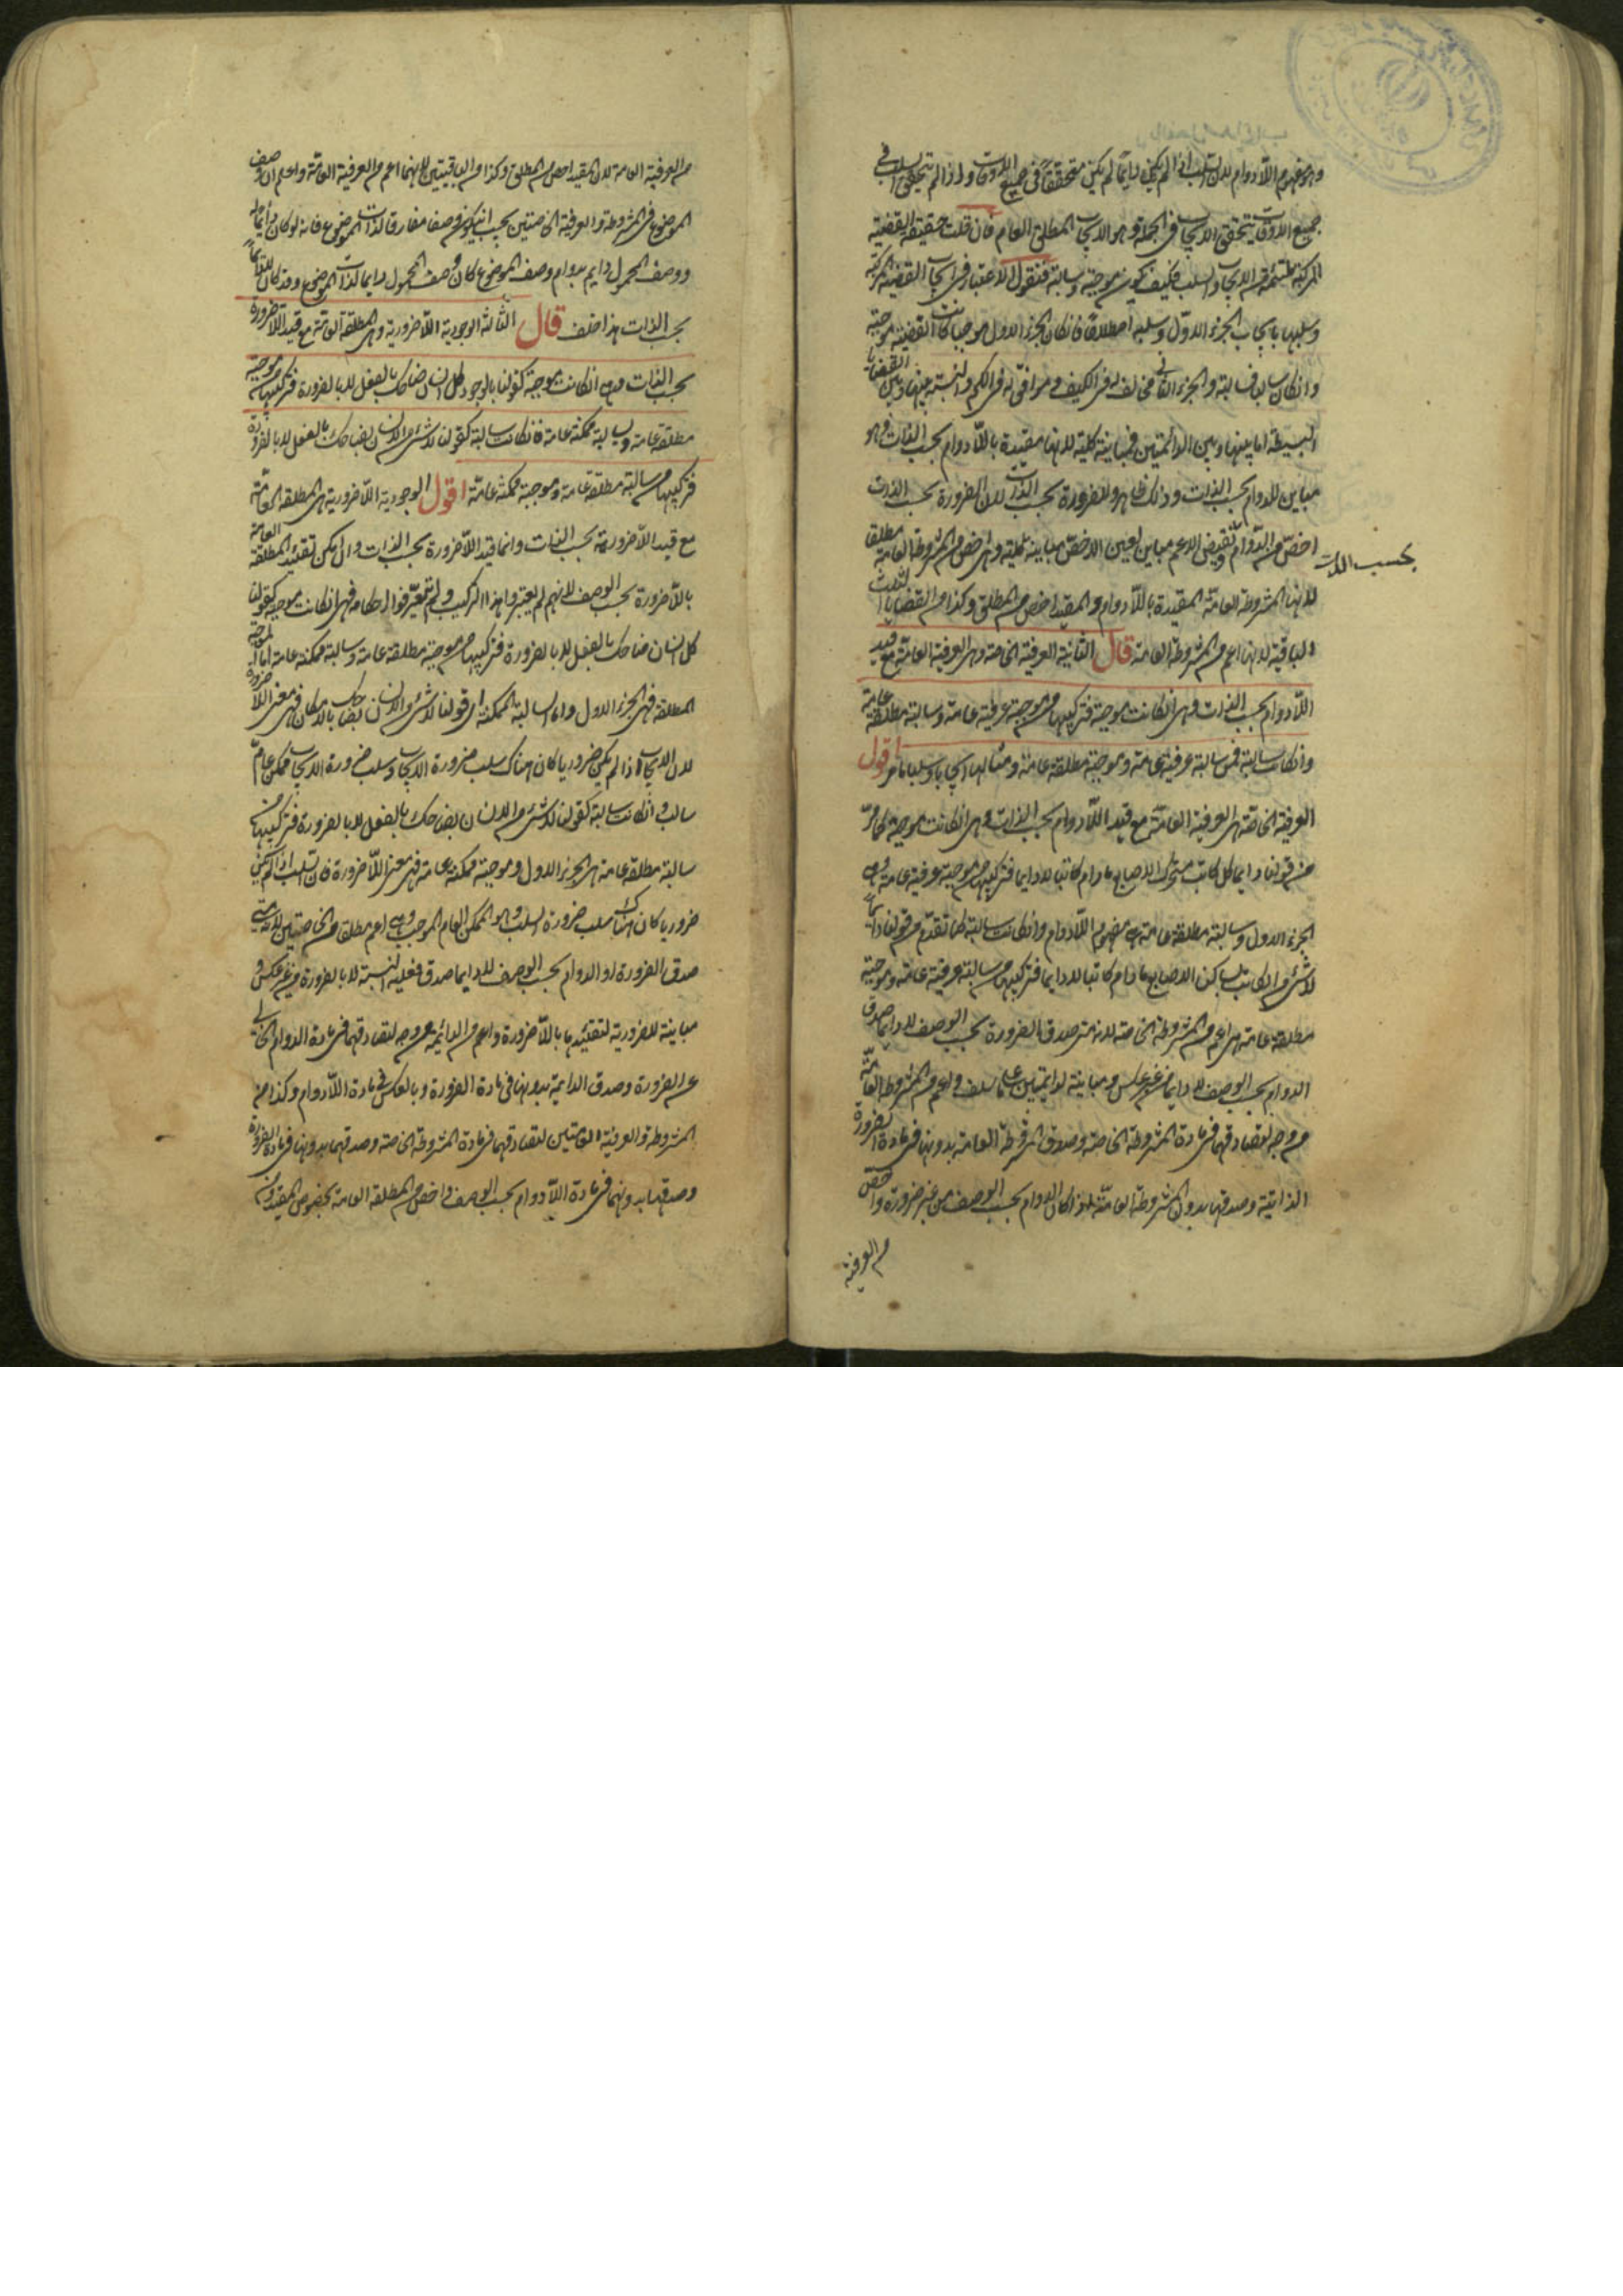 وهو مفهوم اللادوام لان السلب اذا لم يكن دايما لم يكن متحققا في جميع الاوقات واذا لم يتحقق السلب في
جميع الاوقات يتحقق الايجاب في الجملة وهو الايجاب المطلق العام فان قلت حقيقة القضية
المركبة ملتئمة من الايجاب والسلب فكيف يكون موجبة وسالبة فنقول الاعتبار في ايجاب القضية المركبة
وسلبها بايجاب الجزء الاول وسلبه اصطلاحا فان كان الجزء الاول موجبا كانت القضية موجبة
وان كان سالبا فسالبة والجزء الثاني مخالف له في الكيف وموافق له في الكم والنسبة بينها وبين القضايا
البسيطة اما بينها وبين الدائمتين فمباينة كلية لانها مقيدة باللادوام بحسب الذات وهو
مباين للدوام بحسب الذات وذلك ظاهر وللضرورة بحسب الذات لان الضرورة بحسب الذات
اخص من الدوام ونقيض الاعم مباين لعين الاخص مباينة كلية وهي اخص من المشروطة العامة مطلقا
بحسب الذات
لانها المشروطة العامة المقيدة باللادوام والمقيد اخص من المطلق وكذا من القضايا الثلث
الباقية لانها اعم من المشروطة العامة قال الثانية العرفية الخاصة وهي العرفية العامة مع قيد
اللادوام بحسب الذات وهي ان كانت موجبة فتركيبها من موجبة عرفية عامة وسالبة مطلقة عامة
وان كانت سالبة فمن سالبة عرفية عامة وموجبة مطلقة عامة ومثالها ايجابا وسلبا ما مر اقول
العرفية الخاصة هي العرفية العامة مع قيد اللادوام بحسب الذات وهي ان كانت موجبة كما مر
من قولنا دايما كل كاتب متحرك الاصابع ما دام كاتبا لا دايما فتركيبها من موجبة عرفية عامة وهي
الجزء الاول وسالبة مطلقة عامة هي مفهوم اللادوام وان كانت سالبة كما تقدم من قولنا دايما
لا شئ من الكاتب بساكن الاصابع ما دام كاتبا لا دايما فتركيبها من سالبة عرفية عامة وموجبة
مطلقة عامة هي اعم من المشروطة الخاصة لانه متى صدق الضرورة بحسب الوصف لا دايما صدق
الدوام بحسب الوصف لا دايما من غير عكس ومباينة للدايمتين على ما سلف واعم من المشروطة العامة
من وجه لتصادقهما في مادة المشروطة الخاصة وصدق المشروطة العامة بدونها في مادة الضرورة
الذاتية وصدقها بدون المشروطة العامة اذا كان الدوام بحسب الوصف من غير ضرورة واخص
من العرفية
من العرفية العامة لان المقيد اخص من المطلق وكذا من الباقيتين لانهما اعم من العرفية العامة واعلم ان وصف
الموضوع في المشروطة والعرفية الخاصتين يجب ان يكون وصفا مفارقا لذات الموضوع فانه لو كان دايما له
ووصف المحمول دايم بدوام وصف الموضوع كان وصف المحمول دايما لذات الموضوع وقد كان لا دايما
بحسب الذات هذا خلف قال الثالثة الوجودية اللاضرورية وهي المطلقة العامة مع قيد اللاضرورة
بحسب الذات وهي ان كانت موجبة كقولنا بالوجود كل انسان ضاحك بالفعل لا بالضرورة فتركيبها من موجبة
مطلقة عامة وسالبة ممكنة عامة فان كانت سالبة كقولنا لا شئ من الانسان بضاحك بالفعل لا بالضرورة
فتركيبها من سالبة مطلقة عامة وموجبة ممكنة عامة اقول الوجودية اللاضرورية هي المطلقة العامة
مع قيد اللاضرورة بحسب الذات وانما قيد اللاضرورة بحسب الذات وان امكن تقييد المطلقة العامة
باللاضرورة بحسب الوصف لانهم لم يعتبروا هذا التركيب ولم يتعرفوا احكامه فهي ان كانت موجبة كقولنا
كل انسان ضاحك بالفعل لا بالضرورة فتركيبها من موجبة مطلقة عامة وسالبة ممكنة عامة اما الموجبة
المطلقة فهي الجزء الاول واما السالبة الممكنة اي قولنا لا شئ من الانسان بضاحك بالامكان فهي معنى اللاضرورة
لان الايجاب اذا لم يكن ضروريا كان هناك سلب ضرورة الايجاب وسلب ضرورة الايجاب ممكن عام
سالب وان كانت سالبة كقولنا لا شئ من الانسان بضاحك بالفعل لا بالضرورة فتركيبها من
سالبة مطلقة عامة هي الجزء الاول وموجبة ممكنة عامة فهي معنى اللاضرورة فان السلب اذا لم يكن
ضروريا كان هناك سلب ضرورة السلب وهو الممكن العام الموجب وهي اعم مطلقا من الخاصتين لانه متى
صدق الضرورة او الدوام بحسب الوصف لا دايما صدق فعلية النسبة لا بالضرورة من غير عكس و
مباينة للضرورية لتقييدها باللاضرورة واعم من الدائمة من وجه لتصادقهما في مادة الدوام الخالي
عن الضرورة وصدق الدايمة بدونها في مادة الضرورة وبالعكس في مادة اللادوام وكذا من
المشروطة والعرفية العامتين لتصادقهما في مادة المشروطة الخاصة وصدقهما بدونها في مادة الضرورة
وصدقها بدونهما في مادة اللادوام بحسب الوصف واخص من المطلقة العامة لخصوص المقيد ومن